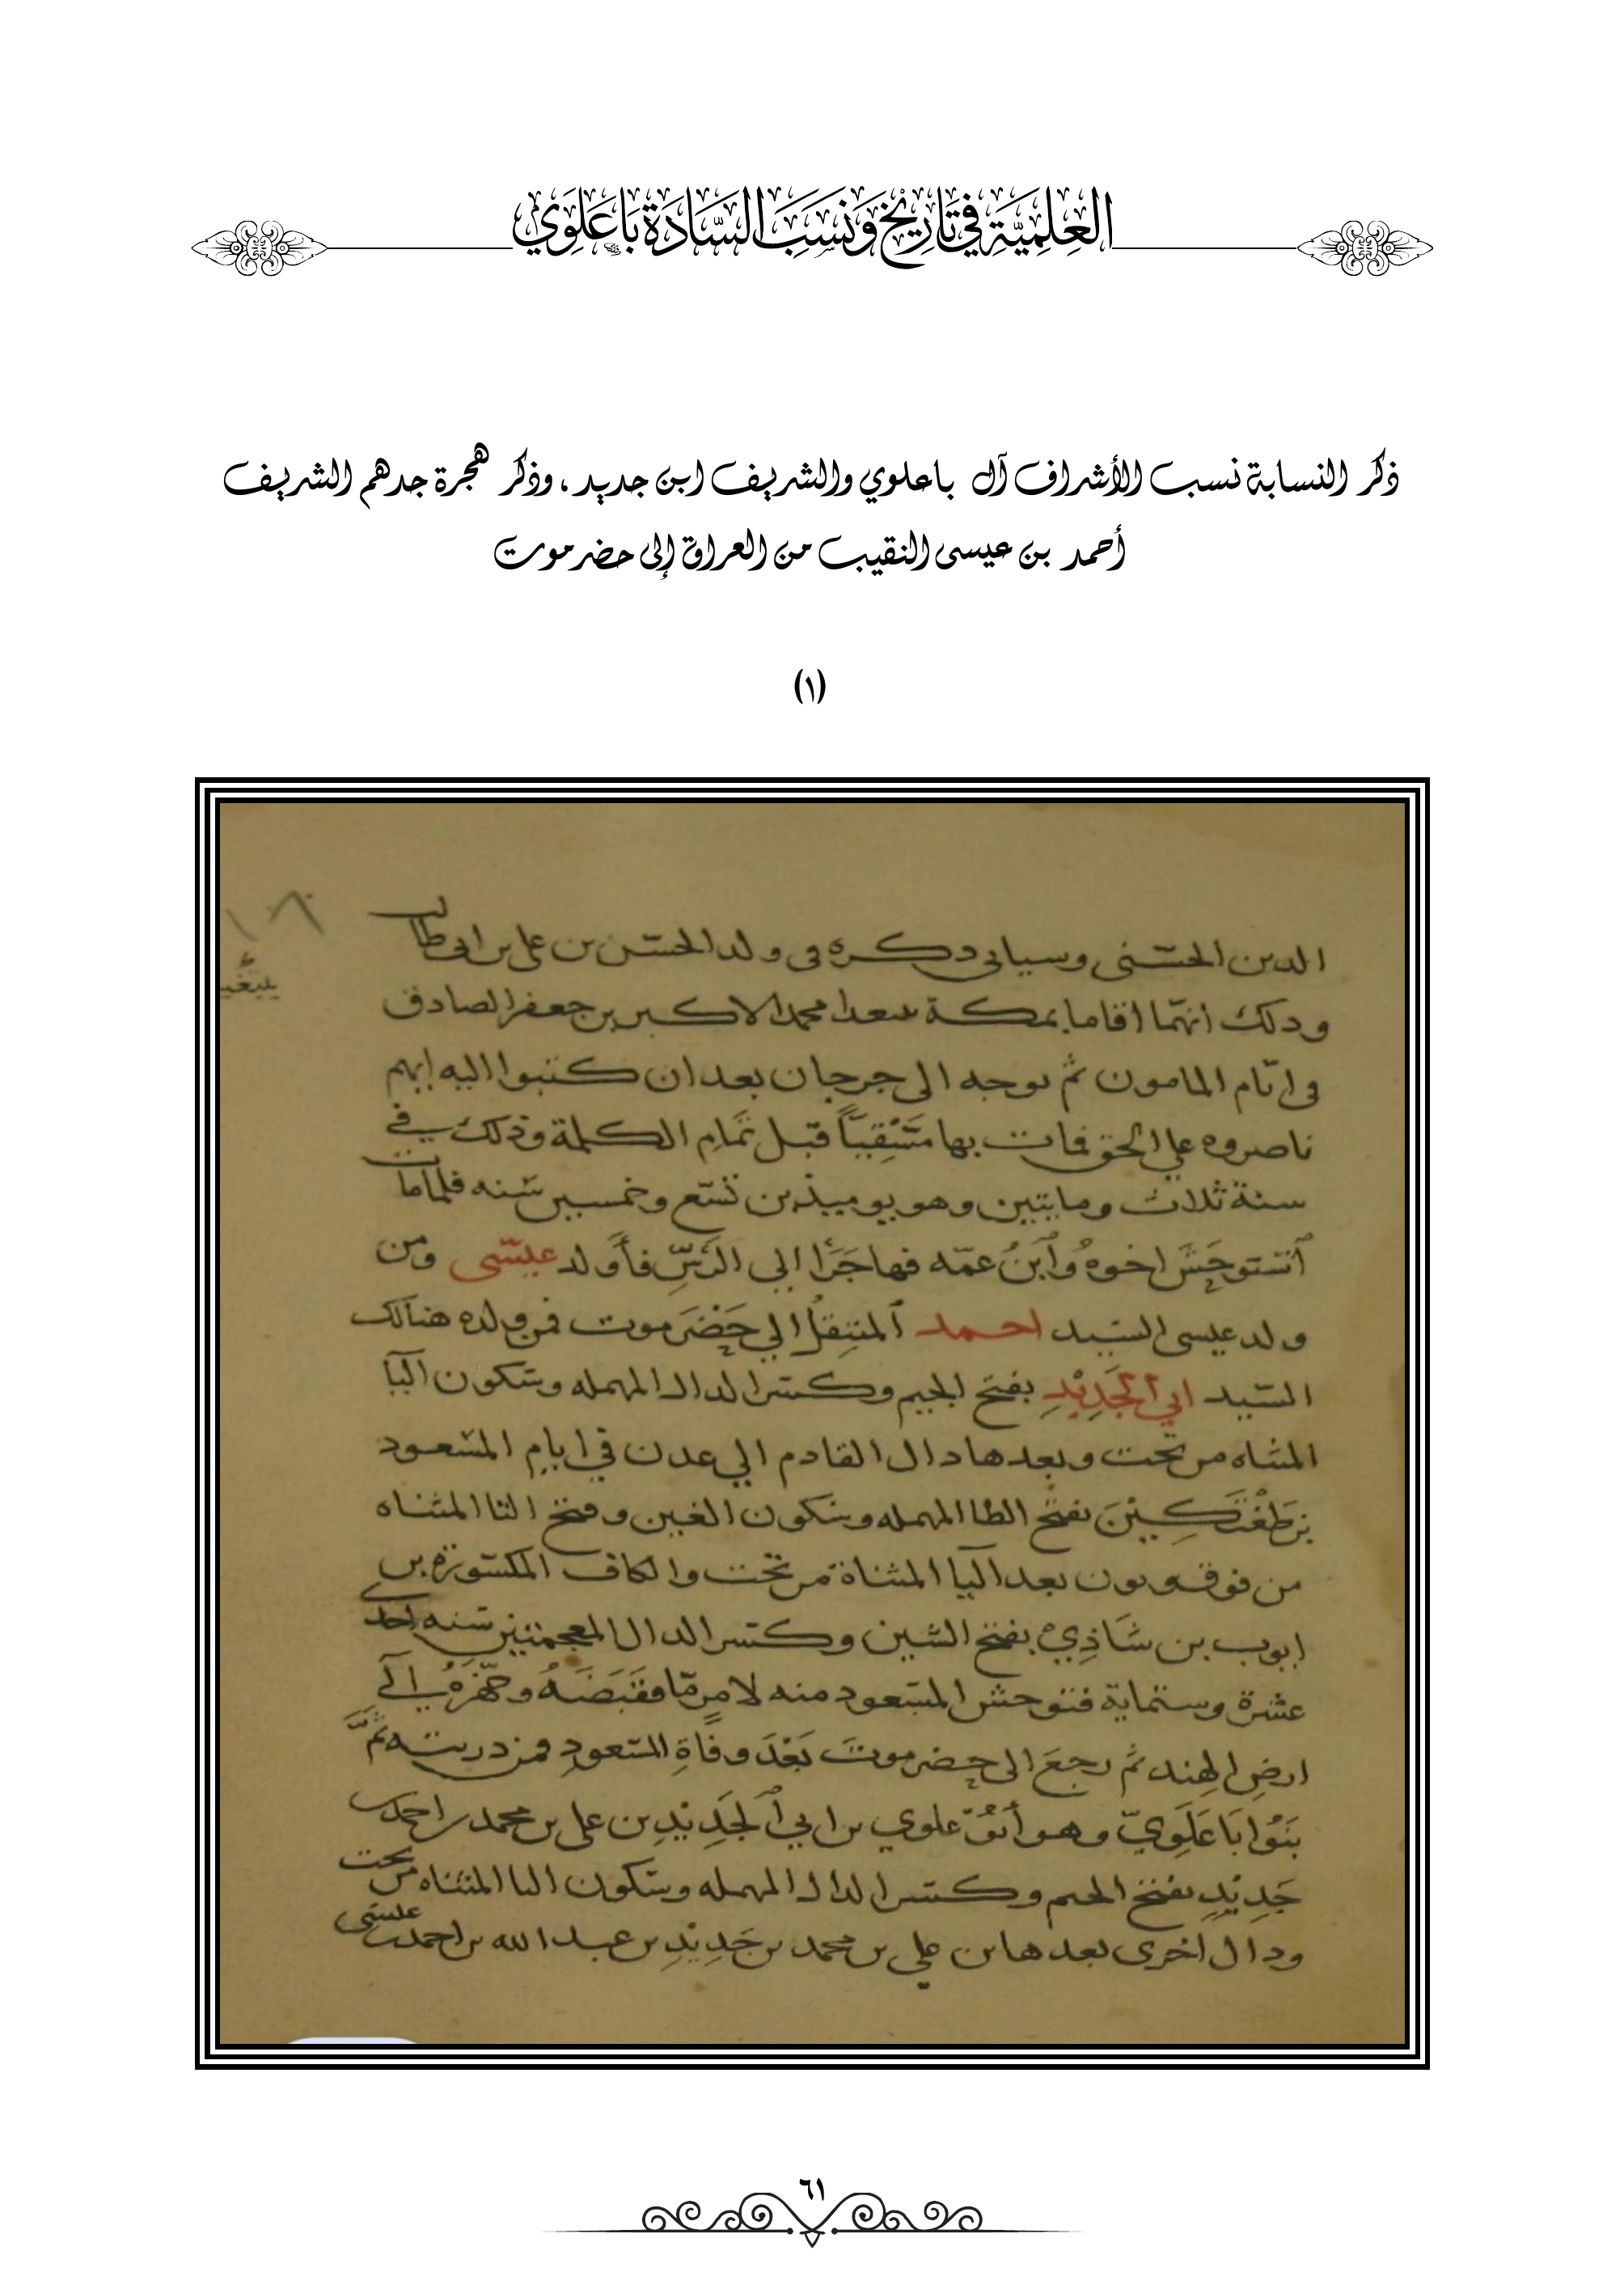 العِلمِيَّة في تَارِيْخِ وَنَسَبِ السَّادَة بَاعَلَوِي
ذكر النسابة نسب الأشراف آل باعلوي والشريف ابن جديد، وذكر هجرة جدهم الشريف
أحمد بن عيسى النقيب من العراق إلى حضرموت
(١)
الدين الحسنى وسياتى دكره فى ولد الحسن بن على بن ابى طالب
ودلك انهما اقاما بمكة محمد الاكبر بن جعفر الصادق
فى ايام المامون ثم توجه الى جرجان بعد ان كتبوا اليه انهم
ناصروه علي الحق فمات بها قبل تمام الكلمة وذلك في
سنة ثلاث ومايتين وهو يوميذ بن تسع وخمسين سنه فلما مات
أستوحَشَ اخوهُ وٱبنُ عمّه فهاجَرَا الي الرَّسِّ فأولد عيسى ومن
ولد عيسى السيد احمد ٱلمنتِقلُ الي حَضْرَموت فمن ولده هنالك
السيد ابي ٱلجَدِيْدِ بفتح الجيم وكسر الدال المهمله وسكون اليا
المثناه من تحت وبعدها دال القادم الي عدن في ايام المسعود
بن طَغْتَكِيْنَ بفتح الطا المهمله وسكون الغين وفتح التا المثناه
من فوق ونون بعد اليا المثناة من تحت والكاف المكسورة بن
ايوب بن شَاذِي بفتح الشين وكسر الدال المعجمتين سنه احدى
عشرة وستماية فتوحش المسعود منه لامرٍ مّا فقَبَضَهُ وجهّزهُ الَى
ارضِ الهند ثم رجعَ الى حضرموتَ بَعْدَ وفاةِ المسعودِ فمن دريته ثَمَّ
بَنُوا بَا عَلَوِيّ وهو أبُو علوي بن ابي ٱلجَدِيْدِ بن على بن محمد بن احمد بن
جَدِيْدٍ بفتح الجيم وكسر الدال المهمله وسكون اليا المثناه من تحت
ودال اخرى بعدها بن علي بن محمد بن جَدِيْدِ بن عبد الله بن احمد بن عيسى
٦١